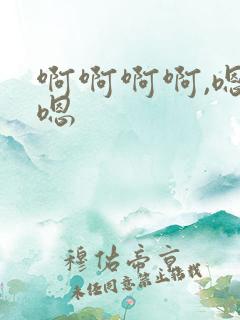 啊啊啊啊,嗯
嗯
穆佑帝京
未经同意禁止搭讪